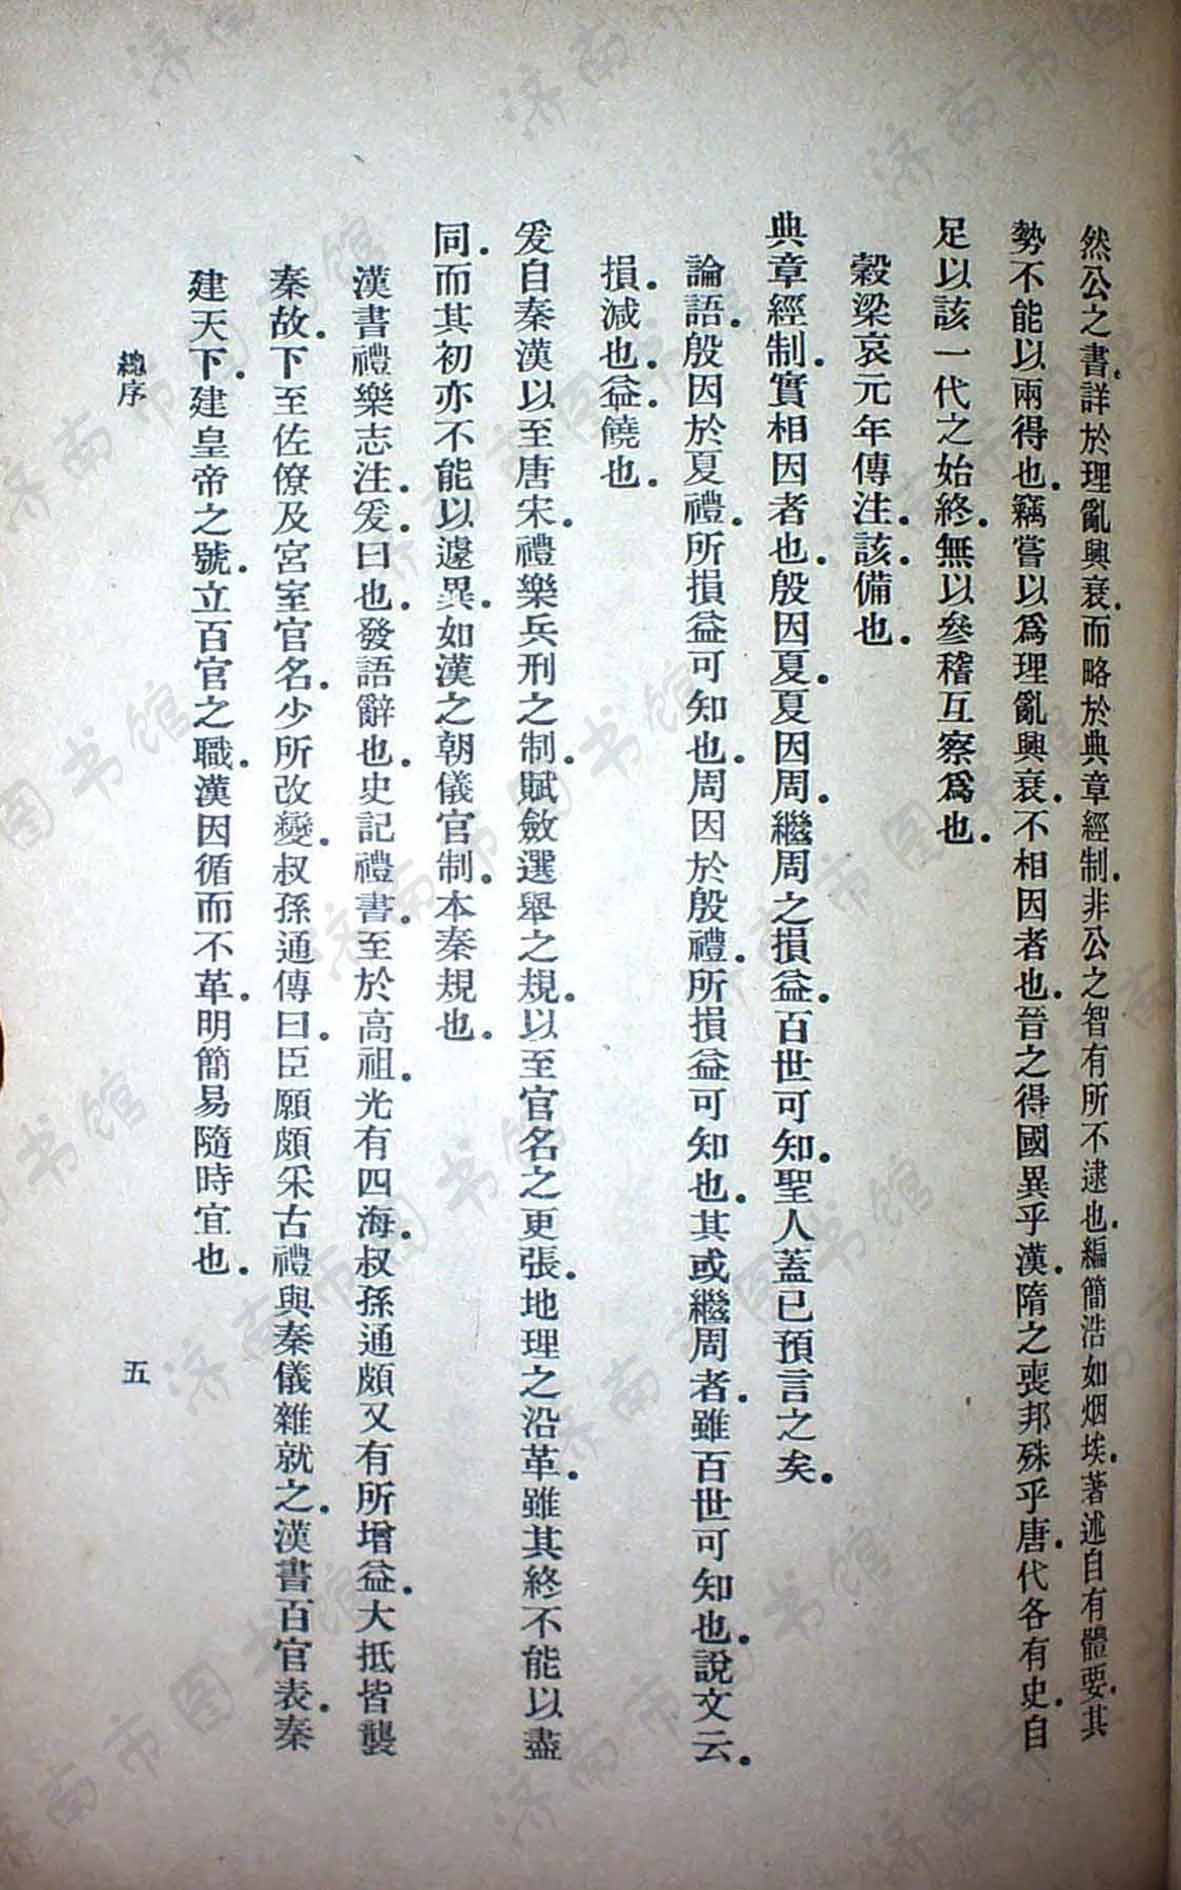 然公之書.詳於理亂興衰.而略於典章經制.非公之智有所不逮也.編簡浩如烟埃.著述自有體要.其
勢不能以兩得也.竊嘗以爲理亂興衰.不相因者也.晉之得國異乎漢.隋之喪邦殊乎唐.代各有史.自
足以該一代之始終.無以參稽互察爲也.
穀梁哀元年傳注.該.備也.
典章經制.實相因者也.殷因夏.夏因周.繼周之損益.百世可知.聖人蓋已預言之矣.
論語.殷因於夏禮.所損益可知也.周因於殷禮.所損益可知也.其或繼周者.雖百世可知也.說文云.
損.減也.益.饒也.
爰自秦漢以至唐宋.禮樂兵刑之制.賦斂選舉之規.以至官名之更張.地理之沿革.雖其終不能以盡
同.而其初亦不能以遽異.如漢之朝儀官制.本秦規也.
漢書禮樂志注.爰.曰也.發語辭也.史記禮書.至於高祖.光有四海.叔孫通頗又有所增益.大抵皆襲
秦故.下至佐僚及宮室官名.少所改變.叔孫通傳曰.臣願頗采古禮與秦儀雜就之.漢書百官表.秦
建天下.建皇帝之號.立百官之職.漢因循而不革.明簡易隨時宜也.
總序
五
济南市图书馆